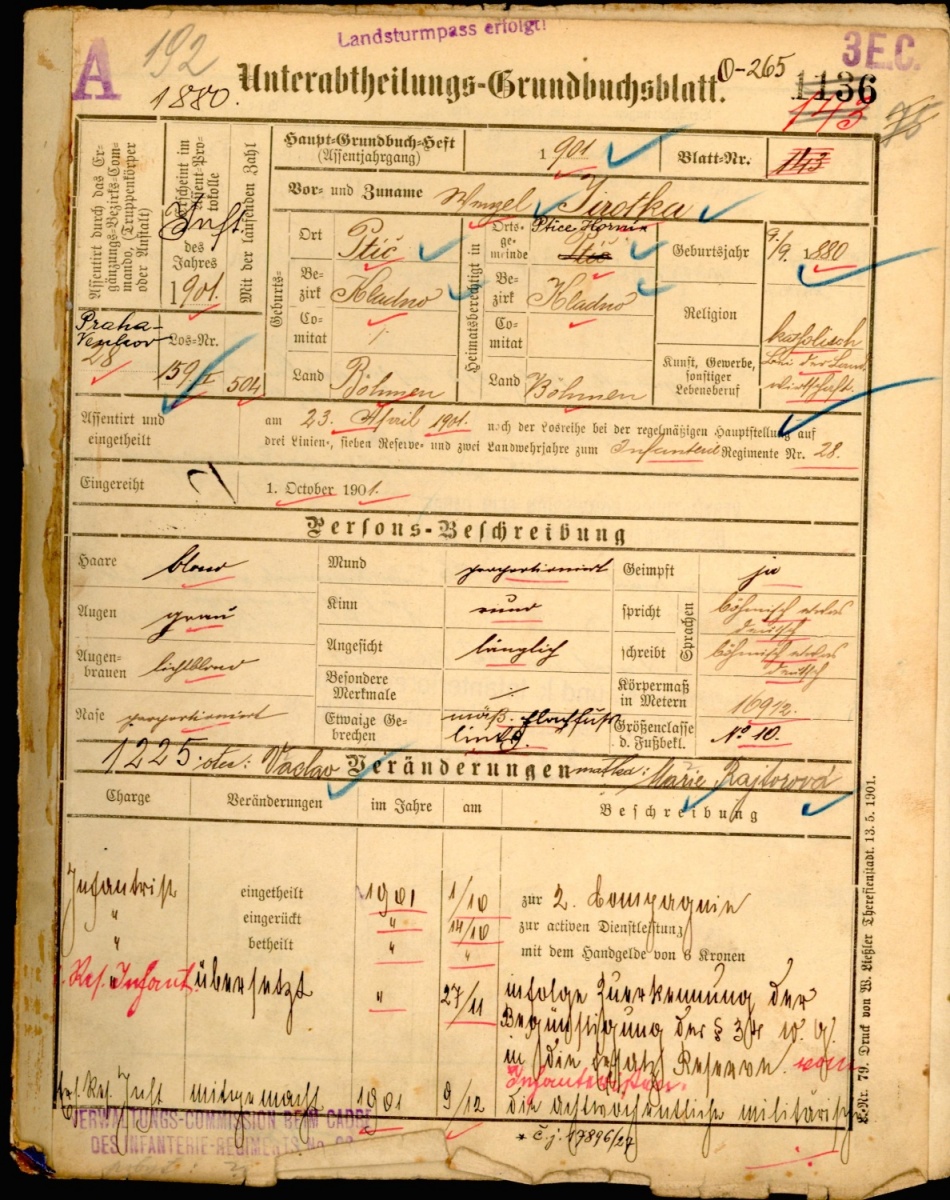 Landsturmpass erfolgt!
A
192
3E.C.
Unterabtheilungs-Grundbuchsblatt.
0-265
1136
143
1880.
Assentirt durch das Ergänzungs-Bezirks-Commando, (Truppenkörper oder Anstalt)
Erscheint im Assent-Protokolle
Inft
des Jahres
1901.
Mit der laufenden Zahl
Praha-
Venkov
28
Los-Nr.
159/I
504
Haupt-Grundbuch-Heft
(Assentjahrgang)
1901
Blatt-Nr.
143
Vor- und Zuname
Wenzel Jirotka
Geburts-
Ort
Ptič
Bezirk
Kladno
Comitat
Land
Böhmen
Heimatsberechtigt in
Ortsgemeinde
Ptice Horní
Ptič
Bezirk
Kladno
Comitat
Land
Böhmen
Geburtsjahr
9./9. 1880
Religion
katholisch
Kunst, Gewerbe, sonstiger Lebensberuf
bei der Landwirtschaft.
Assentirt und eingetheilt
am 23. April 1901. nach der Losreihe bei der regelmäßigen Hauptstellung auf
drei Linien-, sieben Reserve- und zwei Landwehrjahre zum Infanterie Regimente Nr. 28.
Eingereiht
1. October 1901.
Persons-Beschreibung
Haare
blond
Mund
proportionirt
Geimpft
ja
Augen
grau
Kinn
rund
spricht
Sprachen
böhmisch etwas
deutsch
Augenbrauen
lichtblond
Angesicht
länglich
schreibt
böhmisch etwas
deutsch
Besondere Merkmale
Körpermaß in Metern
Nase
proportionirt
Etwaige Gebrechen
mäß. Flachfuß
links.
Größenclasse d. Fußbekl.
No 10.
1225
otec: Václav
Veränderungen
matka: Marie Rajtorová
Charge
Veränderungen
im Jahre
am
Beschreibung
Infantrist
eingetheilt
1901
1/10
zur 2. Compagnie
"
eingerückt
"
14/10
zur activen Dienstleistung
"
betheilt
"
"
mit dem Handgelde von 6 Kronen
Res. Infant.
übersetzt
"
27/11
infolge Zuerkennung der
Begünstigung der § 34 W. G.
in die Ersatz Reserve vom
Infanteristen.
Ers. Res. Inft
mitgemacht
1901
9/12
die achtwöchentliche militärische
VERWALTUNGS-COMMISSION BEIM CADRE
DES INFANTERIE-REGIMENTS No 28
* č.j. 17896/27
L.-Nr. 79. Druck von W. Ließler Theresienstadt. 13. 5. 1901.